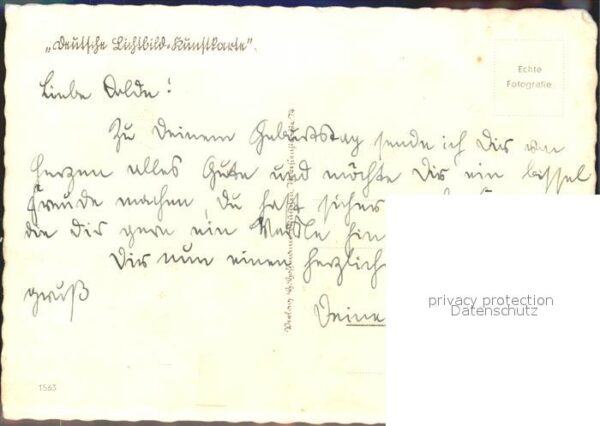 „Deutsche Lichtbild-Kunstkarte".
Echte
Fotografie
Liebe !
Zu Deinem Geburtstag sende ich Dir von
Herzen alles Gute und möchte Dir ein bissel
Freude machen, Du hast sicher
die Dir gern ein hin
Dir nun einen herzlich
gruß
Deine
Verlag
privacy protection
Datenschutz
1563